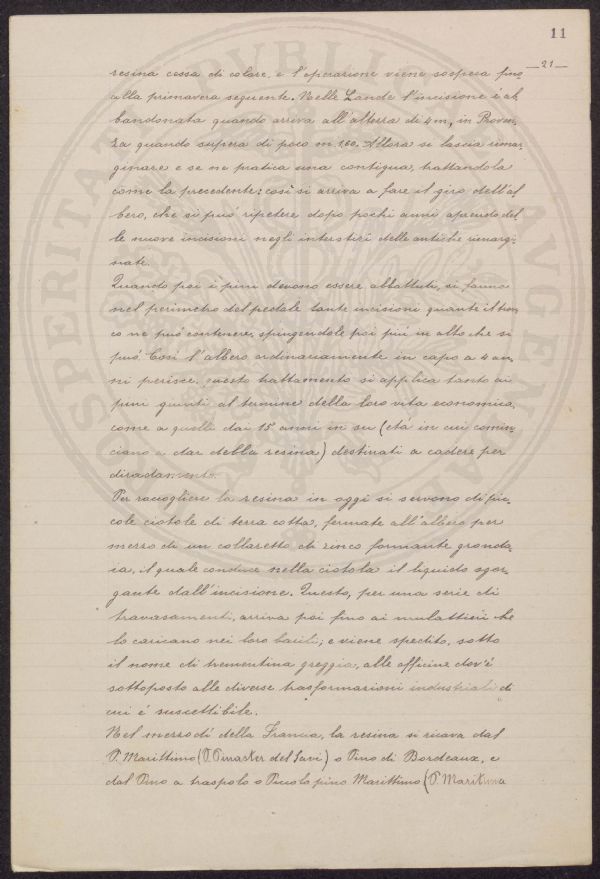 11
—21—
resina cessa di colare, e l'operazione viene sospesa fino
alla primavera seguente. Nelle Lande l'incisione è ab
bandonata quando arriva all'altezza di 4m, in Proven,
za quando supera di poco m 1,60. Allora si lascia rimar
ginare e se ne pratica una contigua, trattandola
come la precedente: così si arriva a fare il giro dell'al
bero, che si può ripetere dopo pochi anni aprendo del
le nuove incisioni negli interstizi delle antiche rimargi,
nate.
Quando poi i pini devono essere abbattuti, si fanno
nel perimetro del pedale tante incisioni quante il tron,
co ne può contenere, spingendole poi più in alto che si
può. Così l'albero ordinariamente in capo a 4 an,
ni perisce, questo trattamento si applica tanto ai
pini giunti al termine della loro vita economica,
come a quelli dai 15 anni in su (età in cui comin,
ciano a dar della resina) destinati a cadere per
diradamento.
Per raccogliere la resina in oggi si servono di pic,
cole ciotole di terra cotta, fermate all'albero per
mezzo di un collaretto di zinco formante gronda,
ia, il quale conduce nella ciotola il liquido sgor,
gante dall'incisione. Questo, per una serie di
travasamenti, arriva poi fino ai mulattieri che
lo caricano nei loro barili; e viene spedito, sotto
il nome di trementina greggia, alle officine dov'è
sottoposto alle diverse trasformazioni industriali di
cui è suscettibile.
Nel mezzodì della Francia, la resina si ricava dal
P. Marittimo (P. Pinaster del Savi) o Pino di Bordeaux, e
dal Pino a traspolo o Piccolo pino Marittimo (P. Maritima